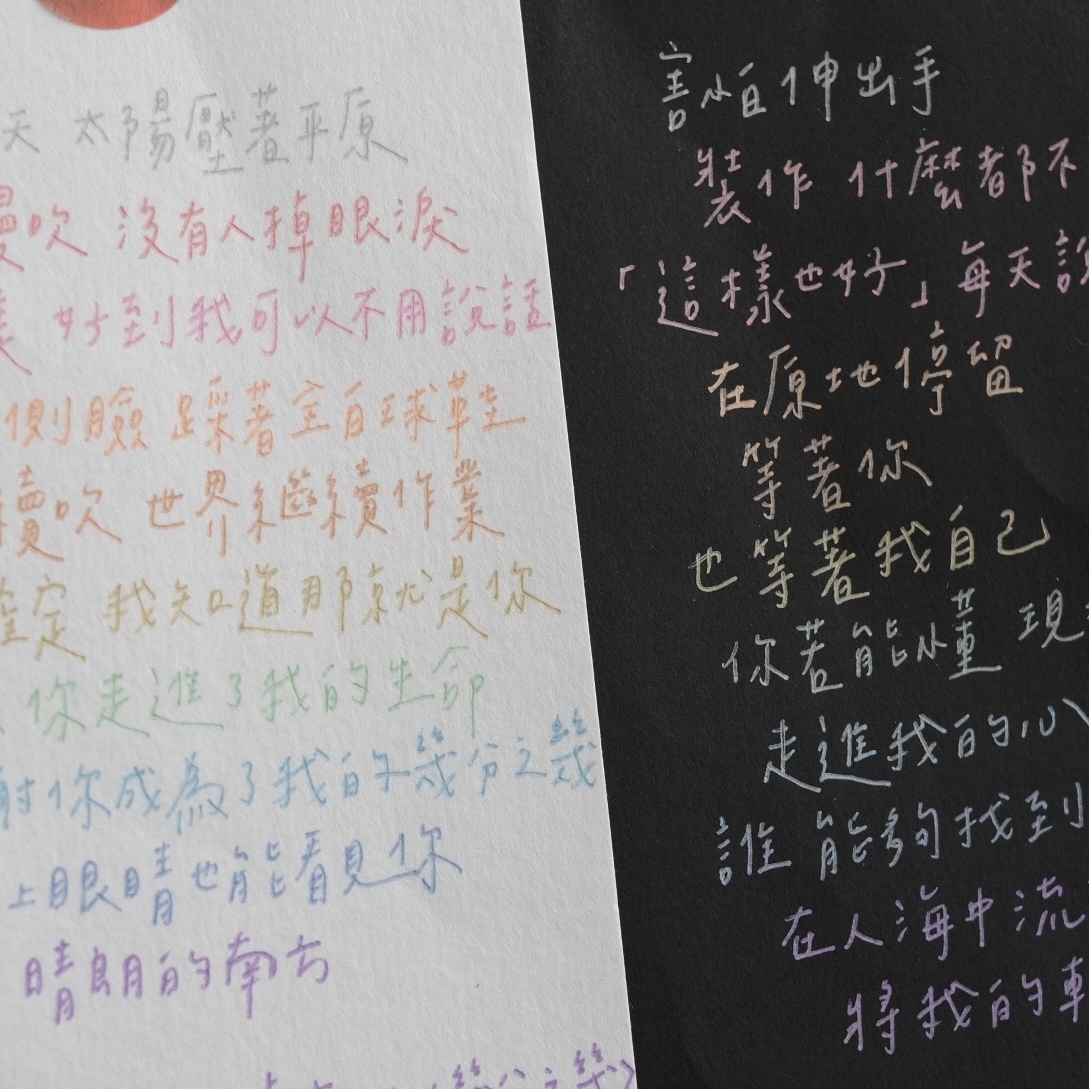 天 太陽壓著平原
慢吹 沒有人掉眼淚
好到我可以不用說話
側臉 踩著全白球鞋
續吹 世界繼續作業
篤定 我知道那就是你
你走進了我的生命
謝你成為了我的幾分之幾
上眼睛也能看見你
晴朗的南方
幾分之幾〉
害怕伸出手
裝作 什麼都不
「這樣也好」每天說
在原地停留
等著你
也等著我自己
你若能懂 現
走進我的心
誰 能夠找到
在人海中流
將我的